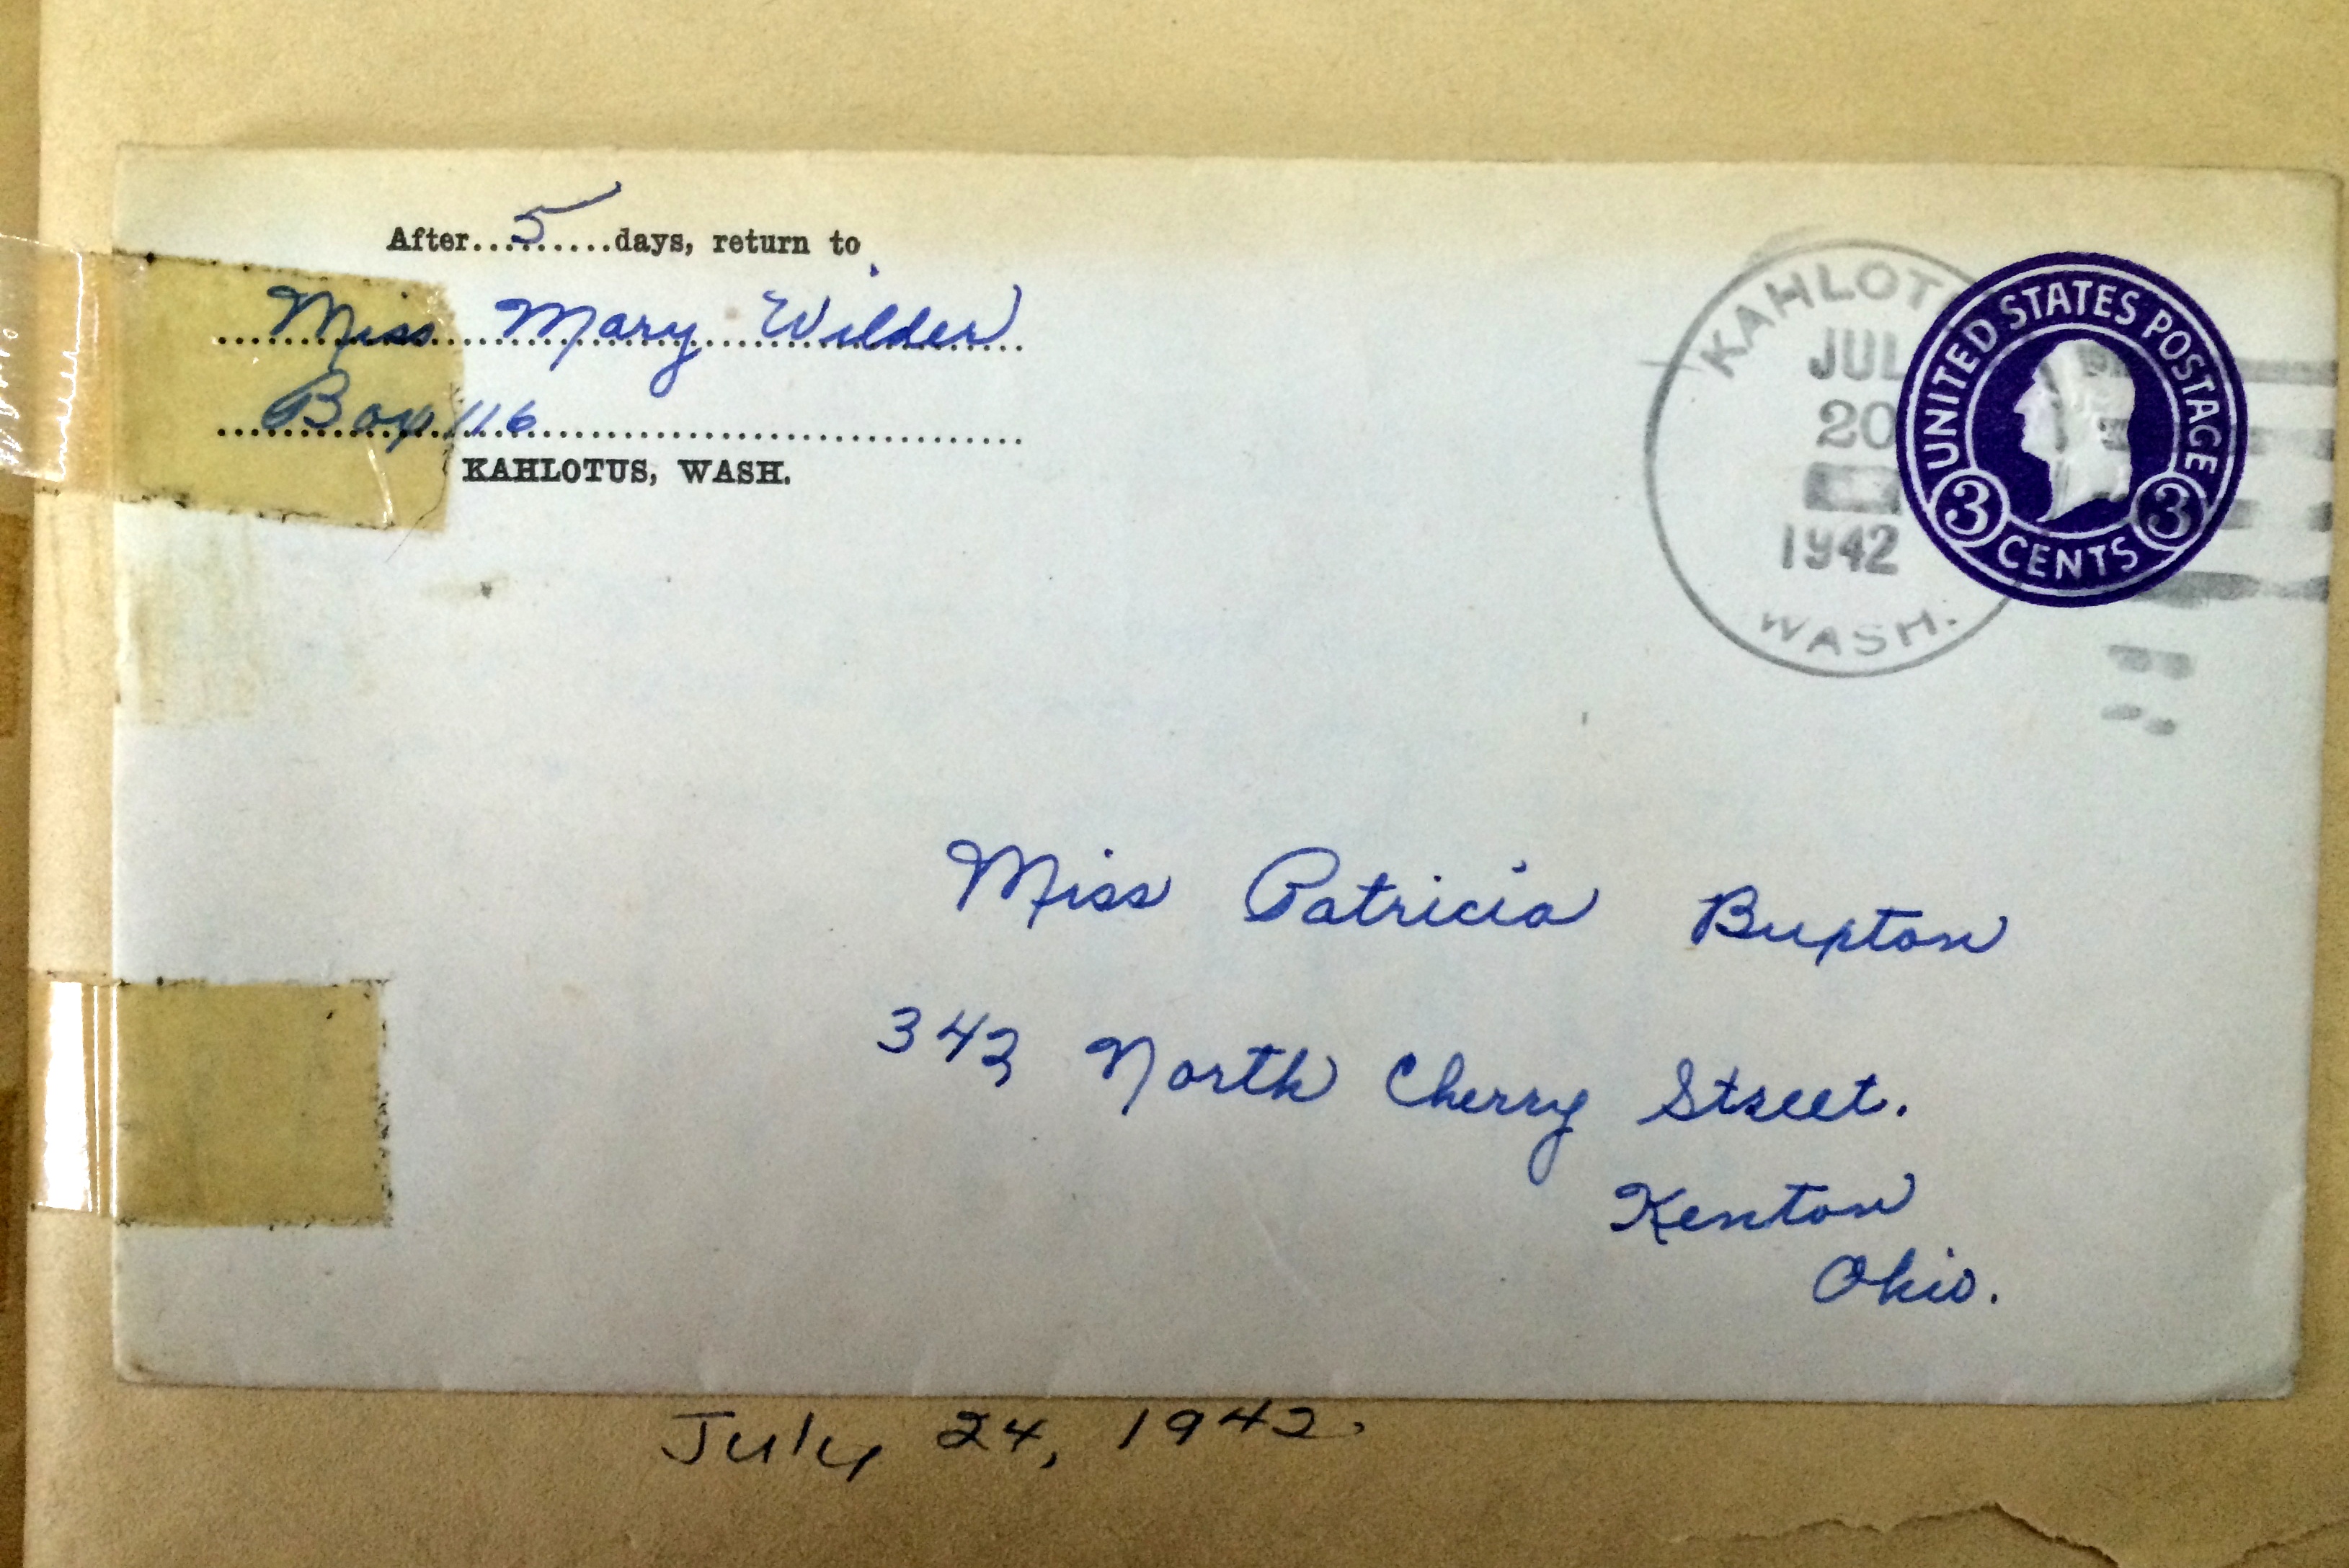 After.....5.....days, return to
Miss Mary Wilder
Box 116
KAHLOTUS, WASH.
KAHLOT
JUL
20
1942
WASH.
UNITED STATES POSTAGE
3 3
CENTS
Miss Patricia Buxton
342 North Cherry Street.
Kenton
Ohio.
July 24, 1942.